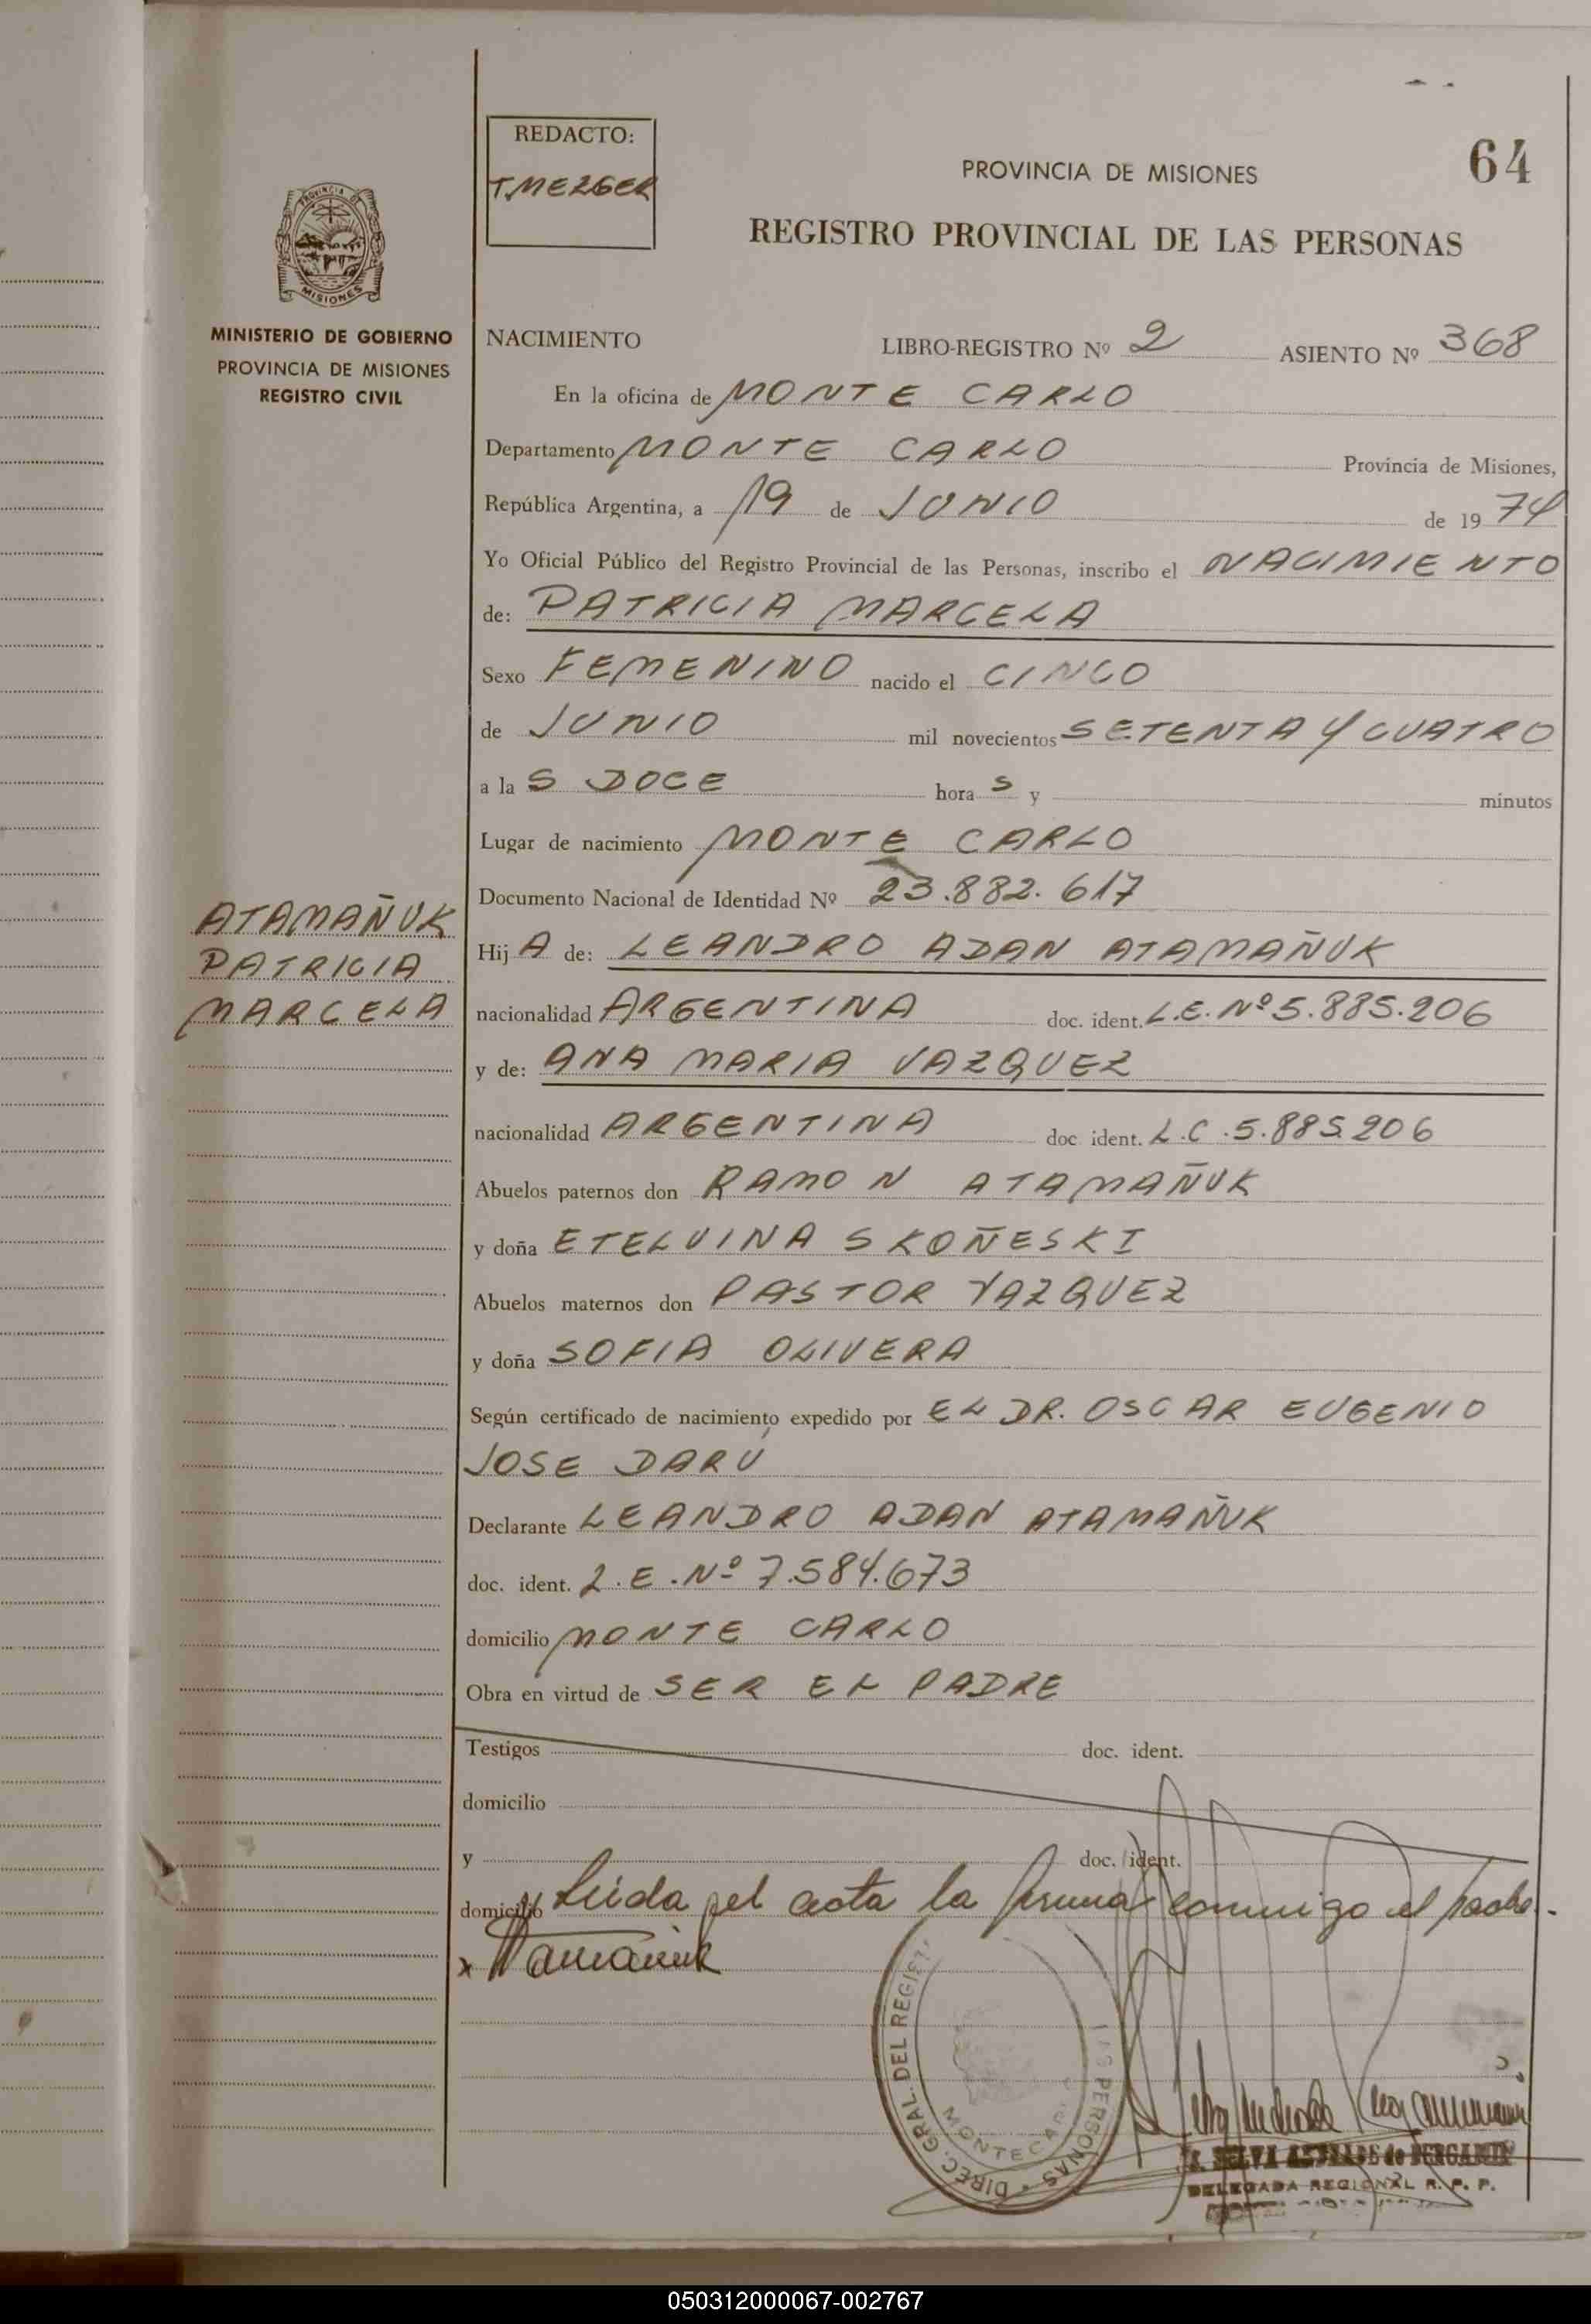 REDACTO:
T. MEZGER
PROVINCIA DE MISIONES
64
REGISTRO PROVINCIAL DE LAS PERSONAS
PROVINCIA DE
MISIONES
MINISTERIO DE GOBIERNO
PROVINCIA DE MISIONES
REGISTRO CIVIL
NACIMIENTO LIBRO-REGISTRO Nº 2 ASIENTO Nº 368
En la oficina de MONTE CARLO
Departamento MONTE CARLO Provincia de Misiones,
República Argentina, a 19 de JUNIO de 1974
Yo Oficial Público del Registro Provincial de las Personas, inscribo el NACIMIENTO
de: PATRICIA MARCELA
Sexo FEMENINO nacido el CINCO
de JUNIO mil novecientos SETENTA Y CUATRO
a la S DOCE hora S y minutos
Lugar de nacimiento MONTE CARLO
Documento Nacional de Identidad Nº 23.882.617
ATAMAÑUK
PATRICIA
MARCELA
Hij A de: LEANDRO ADAN ATAMAÑUK
nacionalidad ARGENTINA doc. ident. L.E. Nº 5.885.206
y de: ANA MARIA VAZQUEZ
nacionalidad ARGENTINA doc ident. L.C. 5.885.206
Abuelos paternos don RAMON ATAMAÑUK
y doña ETELVINA SKOÑESKI
Abuelos maternos don PASTOR VAZQUEZ
y doña SOFIA OLIVERA
Según certificado de nacimiento expedido por EL DR. OSCAR EUGENIO
JOSE DARÚ
Declarante LEANDRO ADAN ATAMAÑUK
doc. ident. L.E. Nº 7.584.673
domicilio MONTE CARLO
Obra en virtud de SER EL PADRE
Testigos doc. ident.
domicilio
y doc. ident.
domicilio Leida el acta la firma conmigo el padre.
x Atamañuk
DIREC. GRAL. DEL REGIST. PERSONAS
MONTECARLO
SELVA ANDRADE de
DELEGADA REGIONAL R. P. P.
050312000067-002767